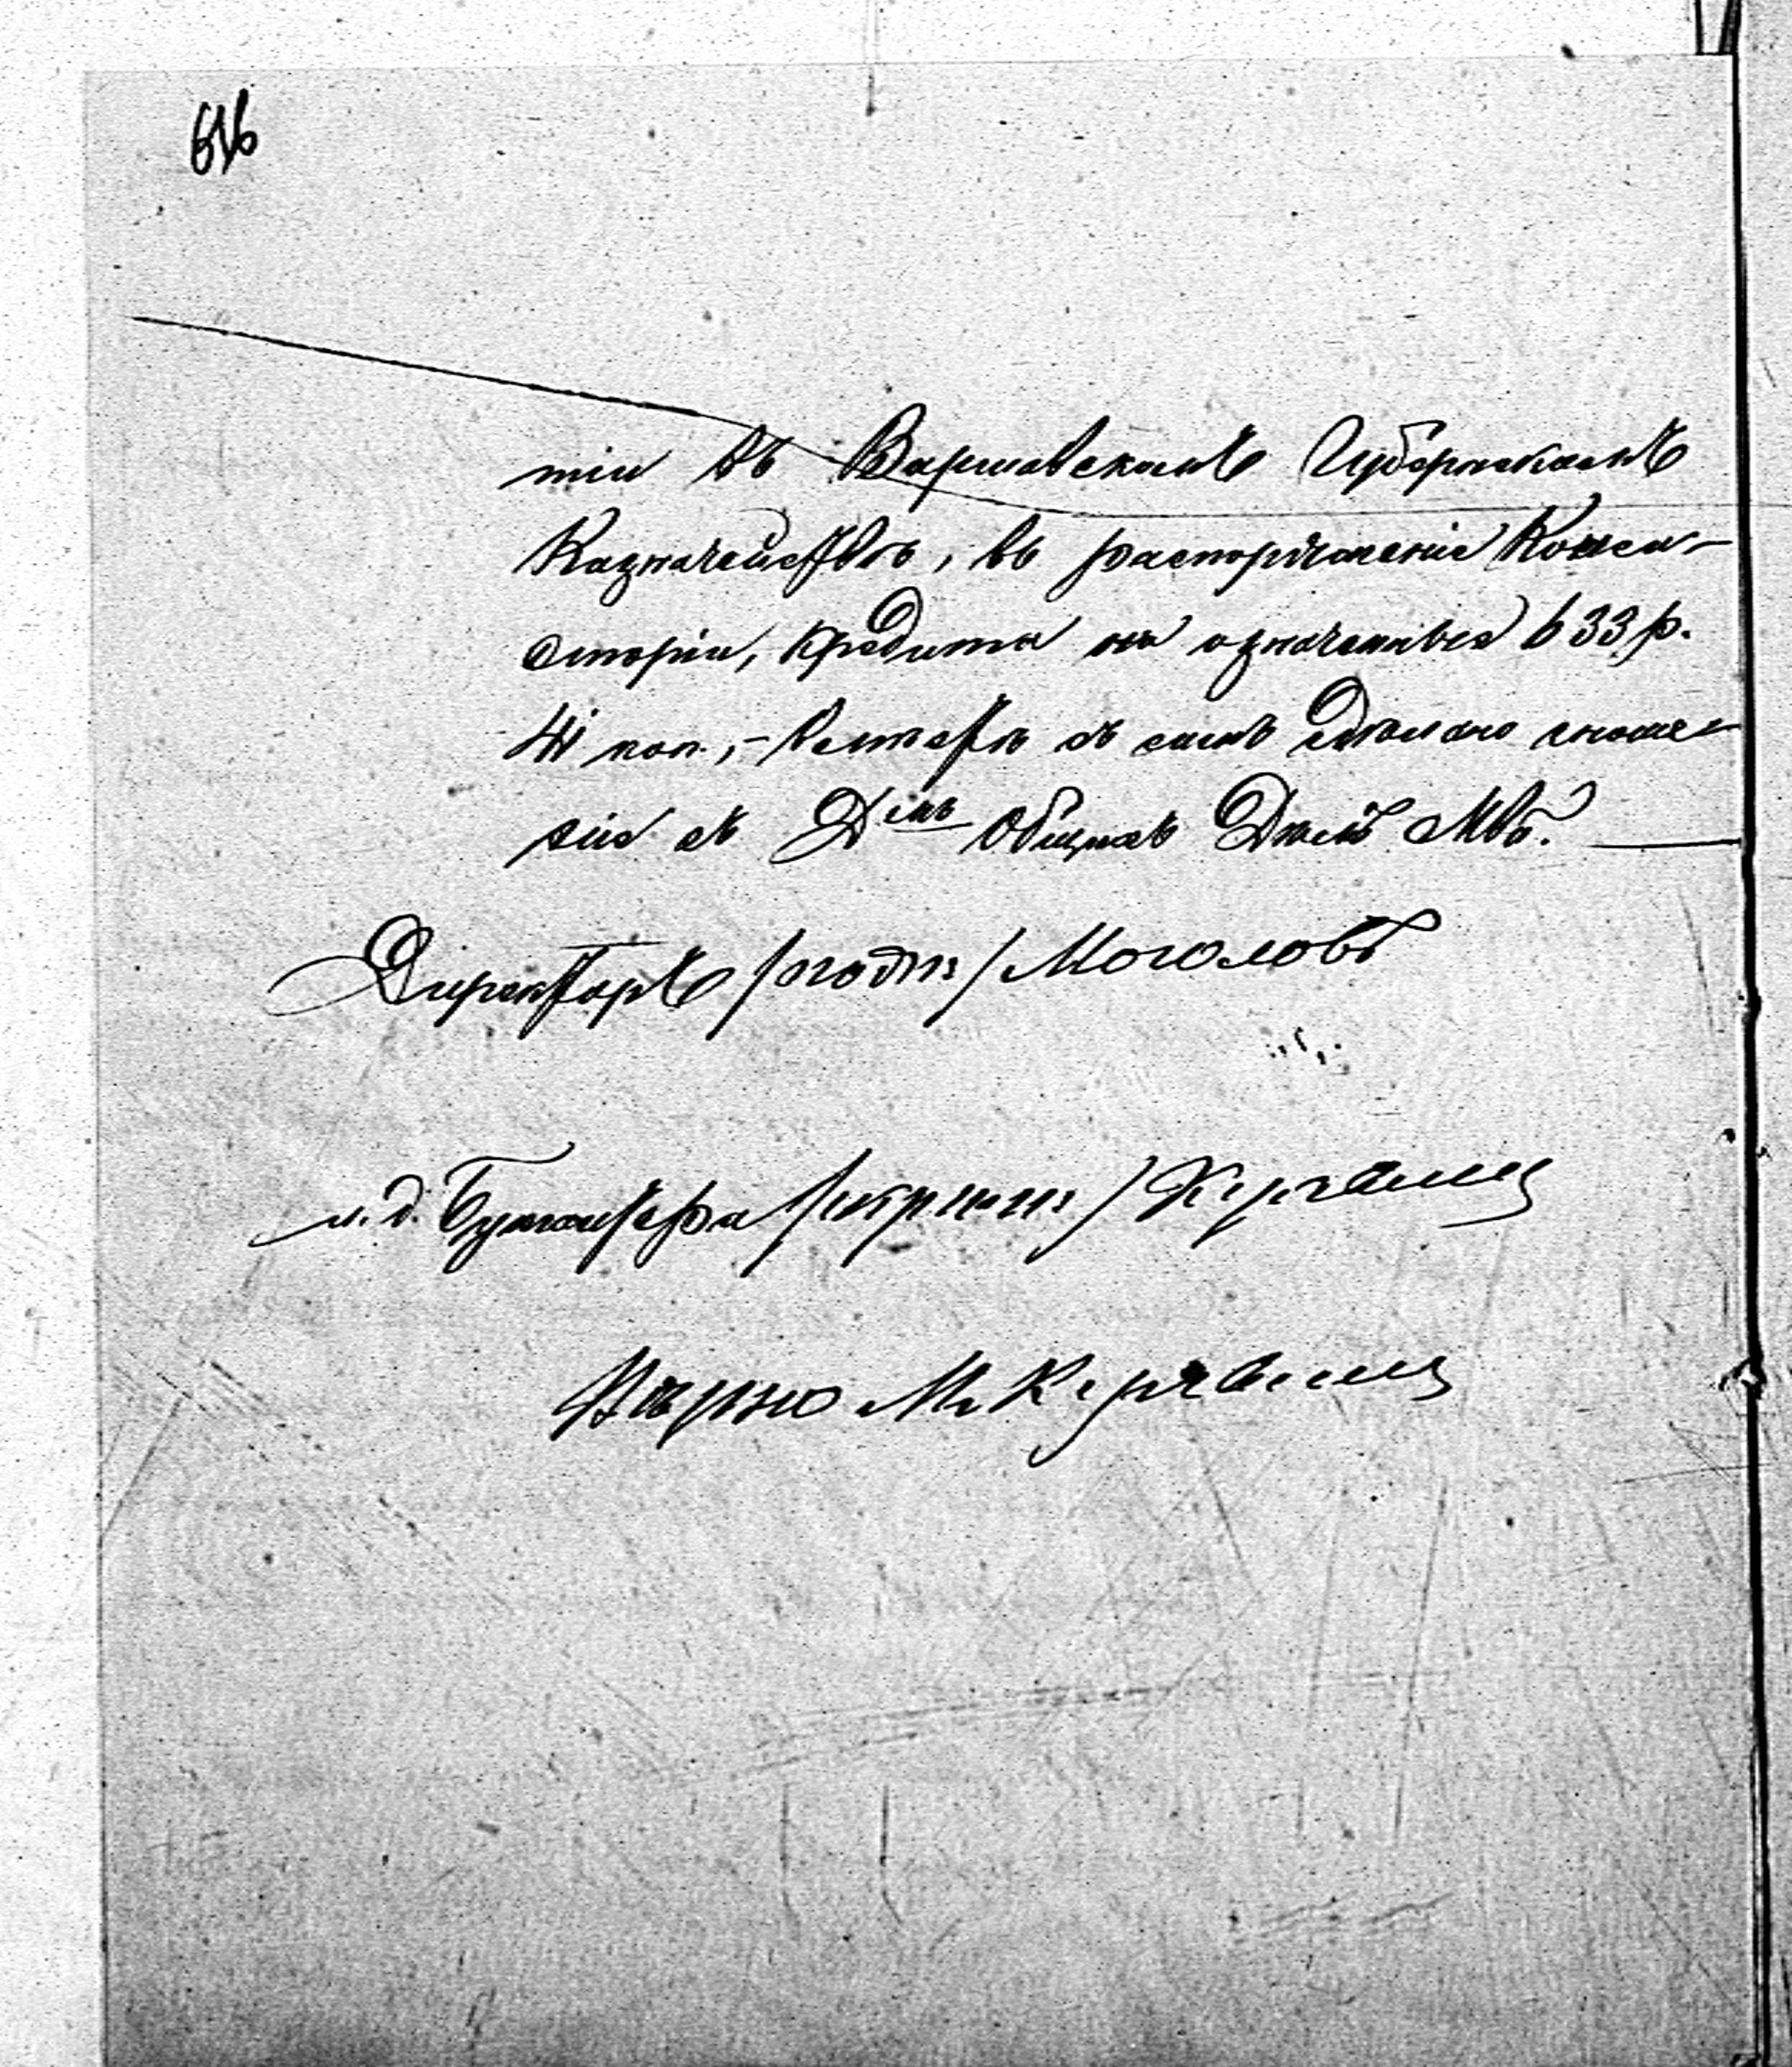 тіи въ Варшавскомъ Губернскомъ
Казначействѣ, въ распоряженіе Конси-
сторіи, кредита на означенные 633 р.
41 коп., - вмѣстѣ съ симъ сдѣлано сноше-
ніе съ Д-омъ Общихъ Дѣлъ МВД.
Директоръ /подп:/ Моголовъ
и. д. Бухгалтера /скрѣпилъ/
Вѣрно М.